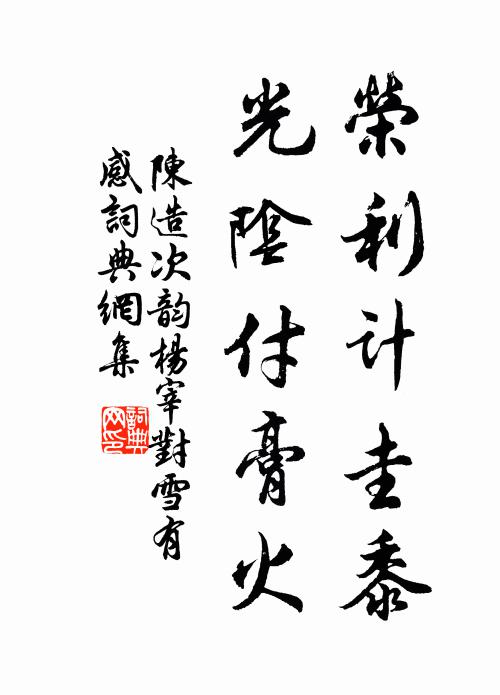 榮利计圭黍
光陰付膏火
陳造次韵楊宰對雪有
感詞典網集
詞典
网印